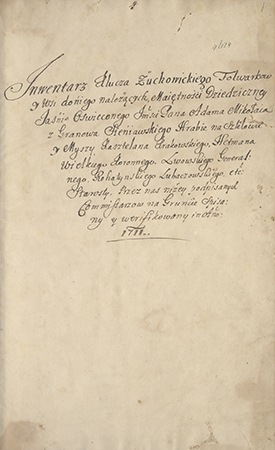 Inwentarz Klucza Zuckowickiego Folwarkow
y Wsi do niego należących, Maiętności Dziedziczney
Jaśnie Oświeconego Jmści Pana Adama Mikołaia
z Granowa Sieniawskiego Hrabie na Szkłowie
y Myszy Kasztelana Krakowskiego, Hetmana
Wielkiego Koronnego, Lwowskiego General:
nego, Rohatynskiego Lubaczowskiego, etc
Starosty, Przez nas niżey podpisanych
Commissarzow na Gruncie Spisa:
ny y werifikowany in Aõ:
1711.